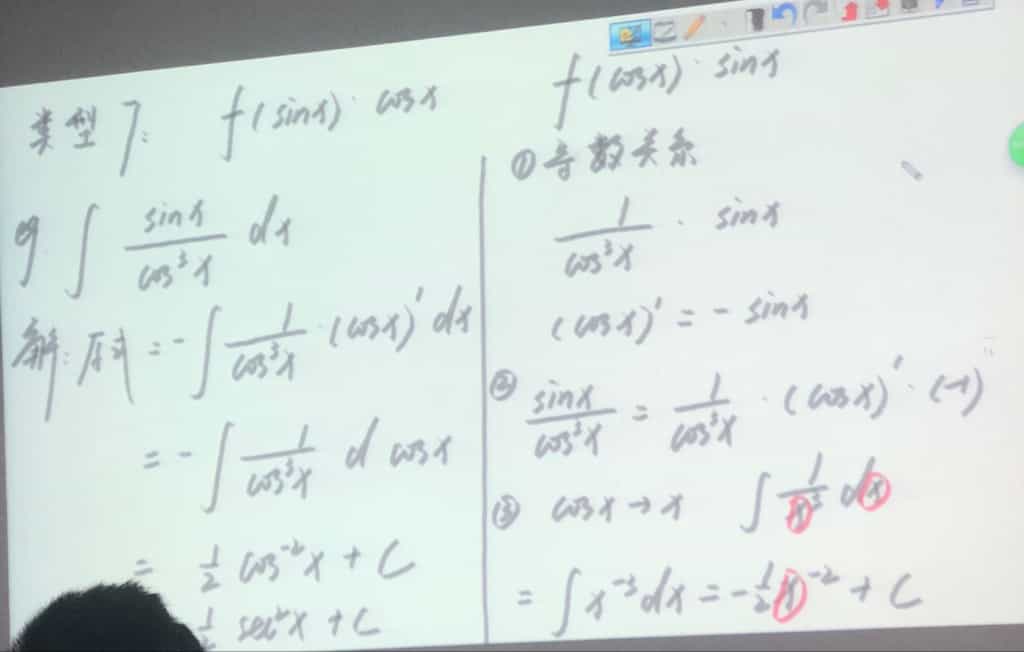 类型7: f(sinx)·cosx f(cosx)·sinx
例. ∫ sinx/cos³x dx
解: 原式 = -∫ 1/cos³x ·(cosx)' dx
= -∫ 1/cos³x d cosx
= 1/2 cos⁻²x + C
1/2 sec²x + C
① 导数关系
1/cos³x · sinx
(cosx)' = - sinx
② sinx/cos³x = 1/cos³x · (cosx)' · (-1)
③ cosx → x ∫ 1/x³ dx
= ∫ x⁻³ dx = -1/2 x⁻² + C